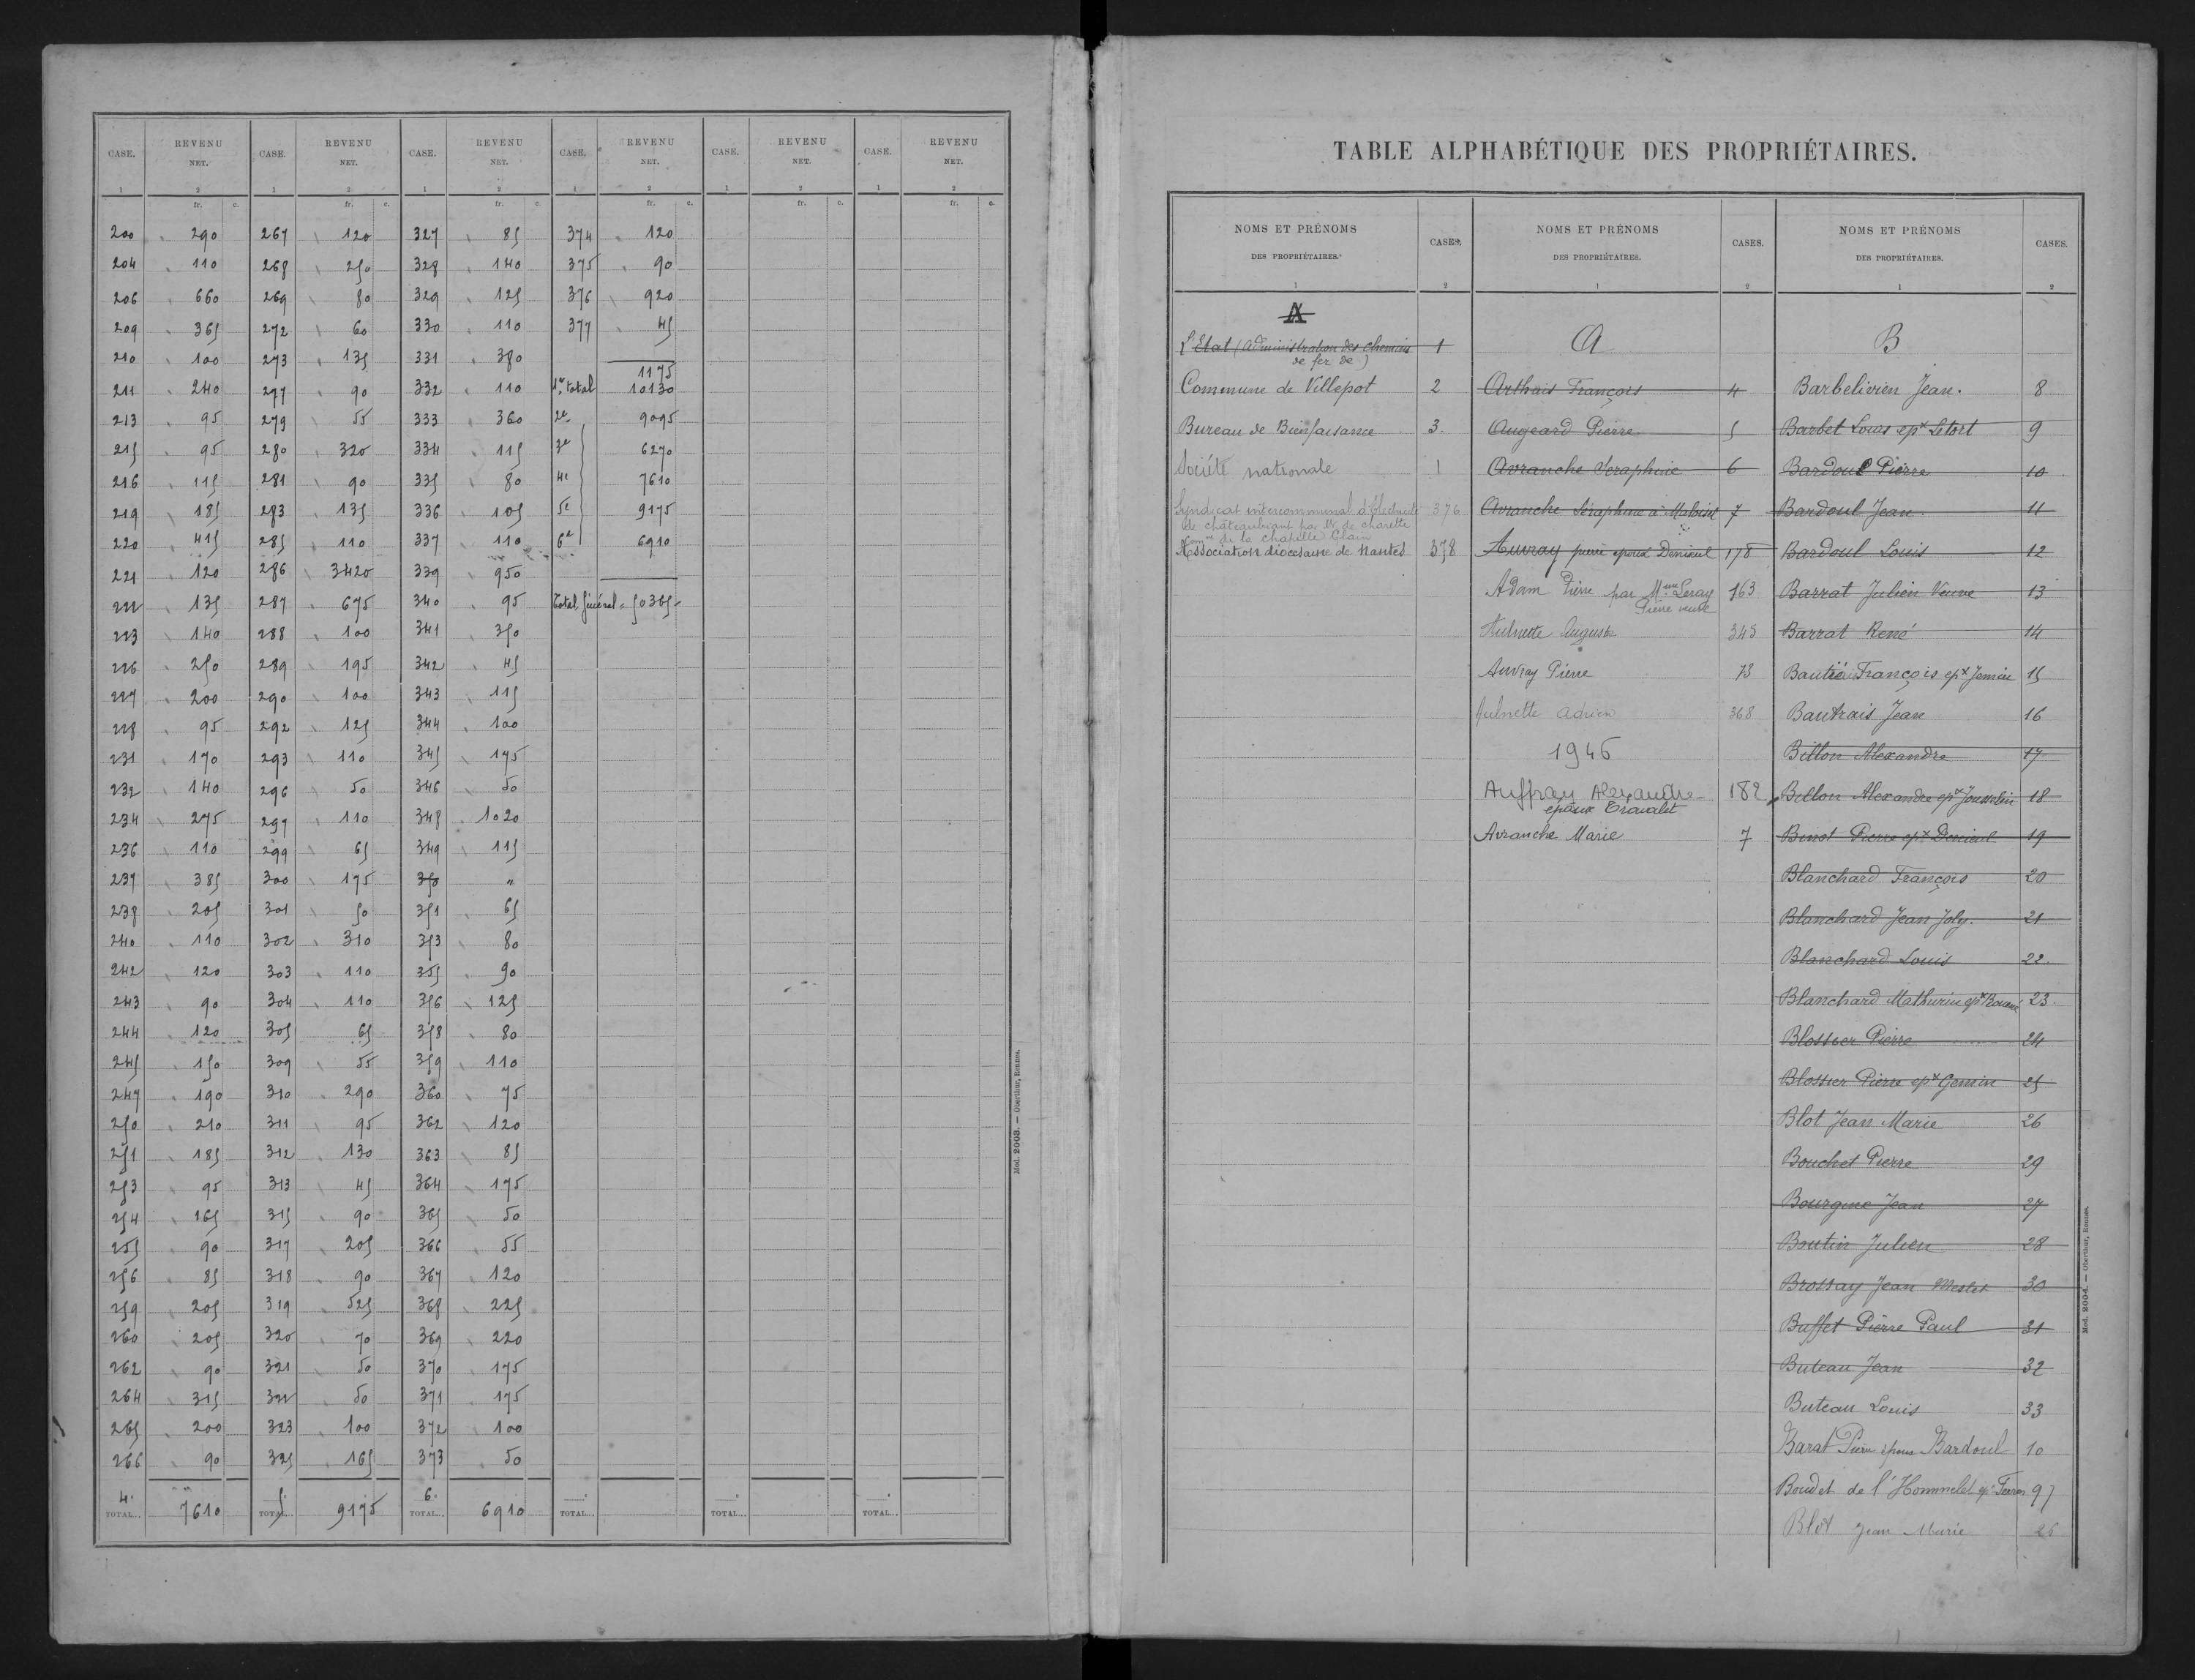 CASE. REVENU NET. CASE. REVENU NET. CASE. REVENU NET. CASE. REVENU NET. CASE. REVENU NET. CASE. REVENU NET.
1 2 1 2 1 2 1 2 1 2 1 2
fr. c. fr. c. fr. c. fr. c. fr. c. fr. c.
200 290 267 120 327 85 374 120
204 110 268 250 328 140 375 90
206 660 269 80 329 125 376 920
209 365 272 60 330 110 377 45
210 100 273 135 331 380
1175
211 240 277 90 332 110 1er total 10130
213 95 279 55 333 360 2e 9095
215 95 280 320 334 115 3e 6270
216 115 281 90 335 80 4e 7610
219 185 283 135 336 105 5e 9175
220 415 285 110 337 110 6e 6910
221 120 286 3420 339 950
222 135 287 675 340 95 Total général = 50365
223 140 288 100 341 350
226 250 289 195 342 45
227 200 290 100 343 115
228 95 292 125 344 100
231 170 293 110 345 175
232 140 296 50 346 50
234 275 297 110 348 1020
236 110 299 65 349 115
237 385 300 175 350 "
238 205 301 50 351 65
240 110 302 310 353 80
242 120 303 110 355 90
243 90 304 110 356 125
244 120 305 65 358 80
245 150 309 55 359 110
247 190 310 290 360 75
250 210 311 95 362 120
251 185 312 130 363 85
253 95 313 45 364 175
254 165 315 90 365 50
255 90 317 205 366 55
256 85 318 90 367 120
259 205 319 525 368 225
260 205 320 70 369 220
262 90 321 50 370 175
264 315 322 50 371 175
265 200 323 100 372 100
266 90 325 165 373 50
4. 5. 6.
TOTAL... 7610 TOTAL... 9175 TOTAL... 6910 TOTAL... TOTAL... TOTAL...
Mod. 2003. — Oberthur, Rennes.
TABLE ALPHABÉTIQUE DES PROPRIÉTAIRES.
NOMS ET PRÉNOMS DES PROPRIÉTAIRES. CASES. NOMS ET PRÉNOMS DES PROPRIÉTAIRES. CASES. NOMS ET PRÉNOMS DES PROPRIÉTAIRES. CASES.
1 2 1 2 1 2
A
l'Etat (Administration des chemins 1
de fer de)
Commune de Villepot 2
Bureau de Bienfaisance 3.
Société nationale 1
Syndicat intercommunal d'Electricité 376
de châteaubriant par Mr de charette
de la chapelle Glain
Association diocésaine de Nantes 378
A
Arthuis François 4
Augeard Pierre 5
Avranche Séraphine 6
Avranche Séraphine à Maloisel 7
Auvray pierre epoux Denieul 178
Adam Pierre par Mme Leray 163
Pierre veuve
Hulnette Auguste 345
Auvray Pierre 73
Aulnette Adrien 368
1946
Auffray Alexandre 182
epoux Travalet
Avranche Marie 7
B
Barbelivien Jean. 8
Barbet Louis epx Letort 9
Bardoul Pierre 10
Bardoul Jean 11
Bardoul Louis 12
Barrat Julien Veuve 13
Barrat René 14
Bautié François epx Jemin 15
Bautrais Jean 16
Billon Alexandre 17
Billon Alexandre epx Jousselin 18
Binot Pierre epx Denieul 19
Blanchard François 20
Blanchard Jean Joly. 21
Blanchard Louis 22
Blanchard Mathurin epx 23
Blossier Pierre 24
Blossier Pierre epx Gemin 25
Blot Jean Marie 26
Bouchet Pierre 29
Bourgine Jean 27
Boutin Julien 28
Brossay Jean Meslet 30
Buffet Pierre Paul 31
Buteau Jean 32
Buteau Louis 33
Barat Pierre epoux Bardoul 10
Boudet de l'Hommelet ep. Ferron 97
Blot Jean Marie 26
Mod. 2004. — Oberthur, Rennes.